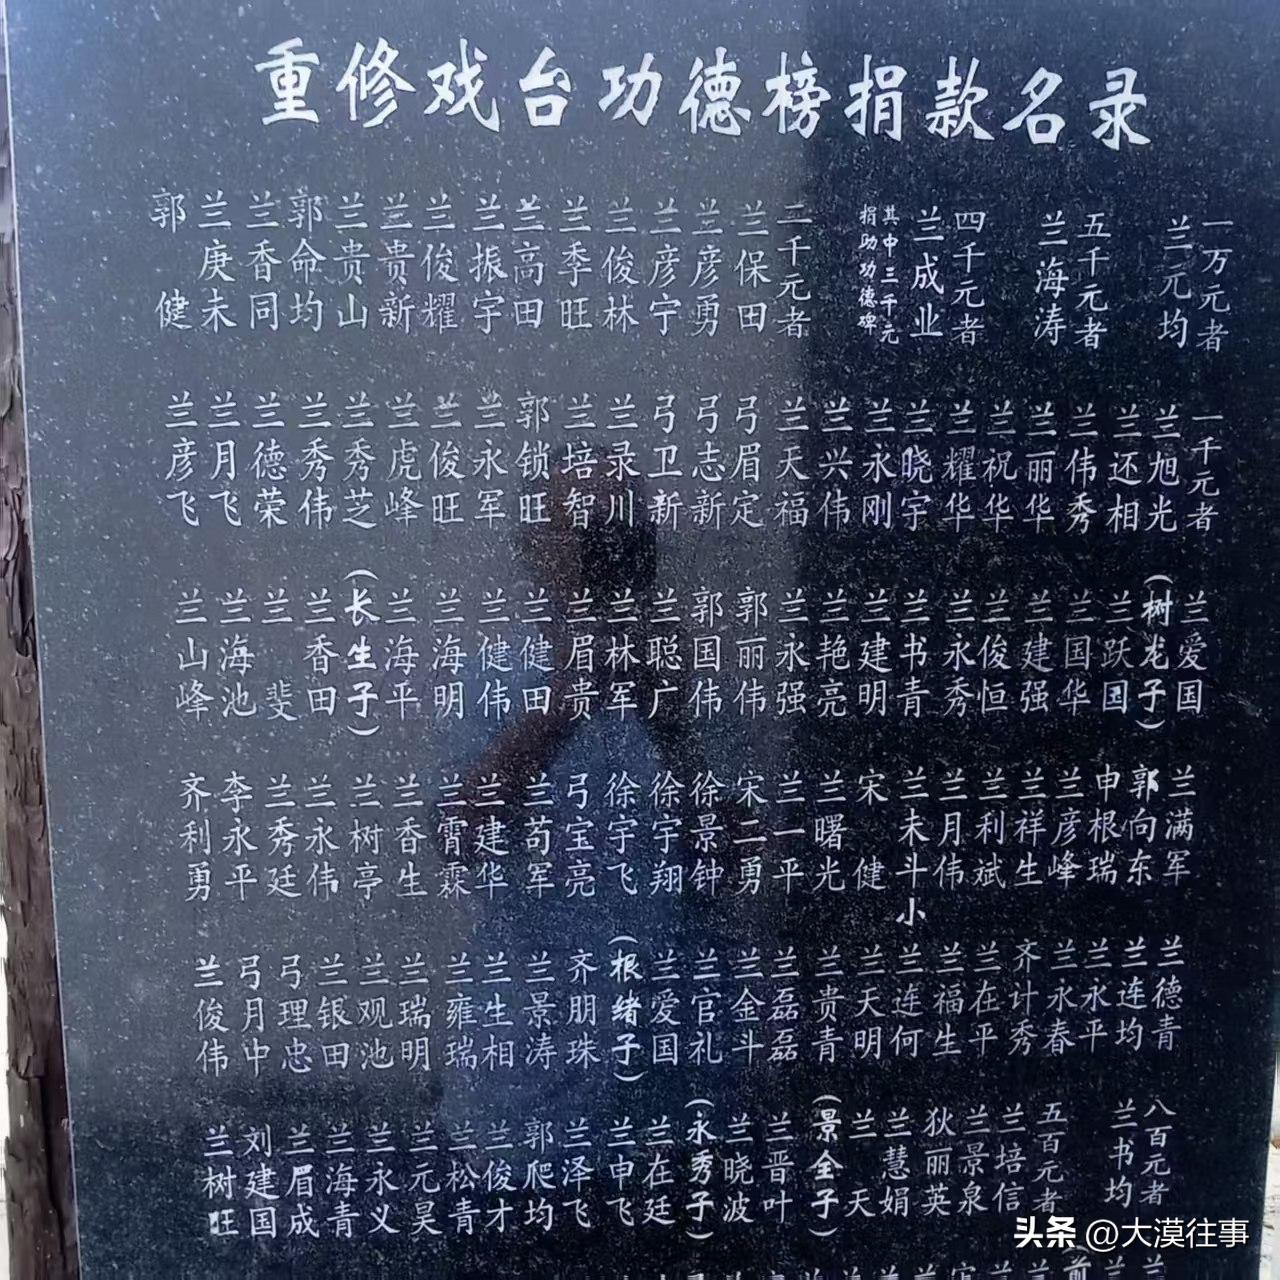 重修戏台功德榜捐款名录
一万元者
兰元均
五千元者
兰海涛
四千元者
兰成业
其中三千元
捐助功德碑
二千元者
兰保田
兰彦勇
兰彦宁
兰俊林
兰季旺
兰高田
兰振宇
兰俊耀
兰贵新
兰贵山
郭命均
兰香同
兰庚未
郭健
一千元者
兰旭光
兰还相
兰伟秀
兰丽华
兰祝华
兰耀华
兰晓宇
兰永刚
兰兴伟
兰天福
弓眉定
弓志新
弓卫新
兰录川
兰培智
郭锁旺
兰永军
兰俊旺
兰虎峰
兰秀芝
兰秀伟
兰德荣
兰月飞
兰彦飞
兰爱国
(树龙子)
兰跃国
兰国华
兰建强
兰俊恒
兰永秀
兰书青
兰建明
兰艳亮
兰永强
郭丽伟
郭国伟
兰聪广
兰林军
兰眉贵
兰健田
兰健伟
兰海明
兰海平
(长生子)
兰香田
兰斐
兰海池
兰山峰
兰满军
郭向东
申根瑞
兰彦峰
兰祥生
兰利斌
兰月伟
兰未斗小
宋健
兰曙光
兰一平
宋二勇
徐景钟
徐宇翔
徐宇飞
弓宝亮
兰苟军
兰建华
兰霄霖
兰香生
兰树亭
兰永伟
兰秀廷
李永平
齐利勇
兰德青
兰连均
兰永平
兰永春
齐计秀
兰在平
兰福生
兰连何
兰天明
兰贵青
兰磊磊
兰金斗
兰官礼
兰爱国
(根绪子)
齐朋珠
兰景涛
兰生相
兰雍瑞
兰瑞明
兰观池
兰银田
弓理忠
弓月中
兰俊伟
八百元者
兰书均
五百元者
兰培信
兰景泉
狄丽英
兰慧娟
兰天
(景全子)
兰晋叶
兰晓波
(永秀子)
兰在廷
兰申飞
兰泽飞
郭爬均
兰俊才
兰松青
兰元昊
兰永义
兰海青
兰眉成
刘建国
兰树旺
头条 @大漠往事